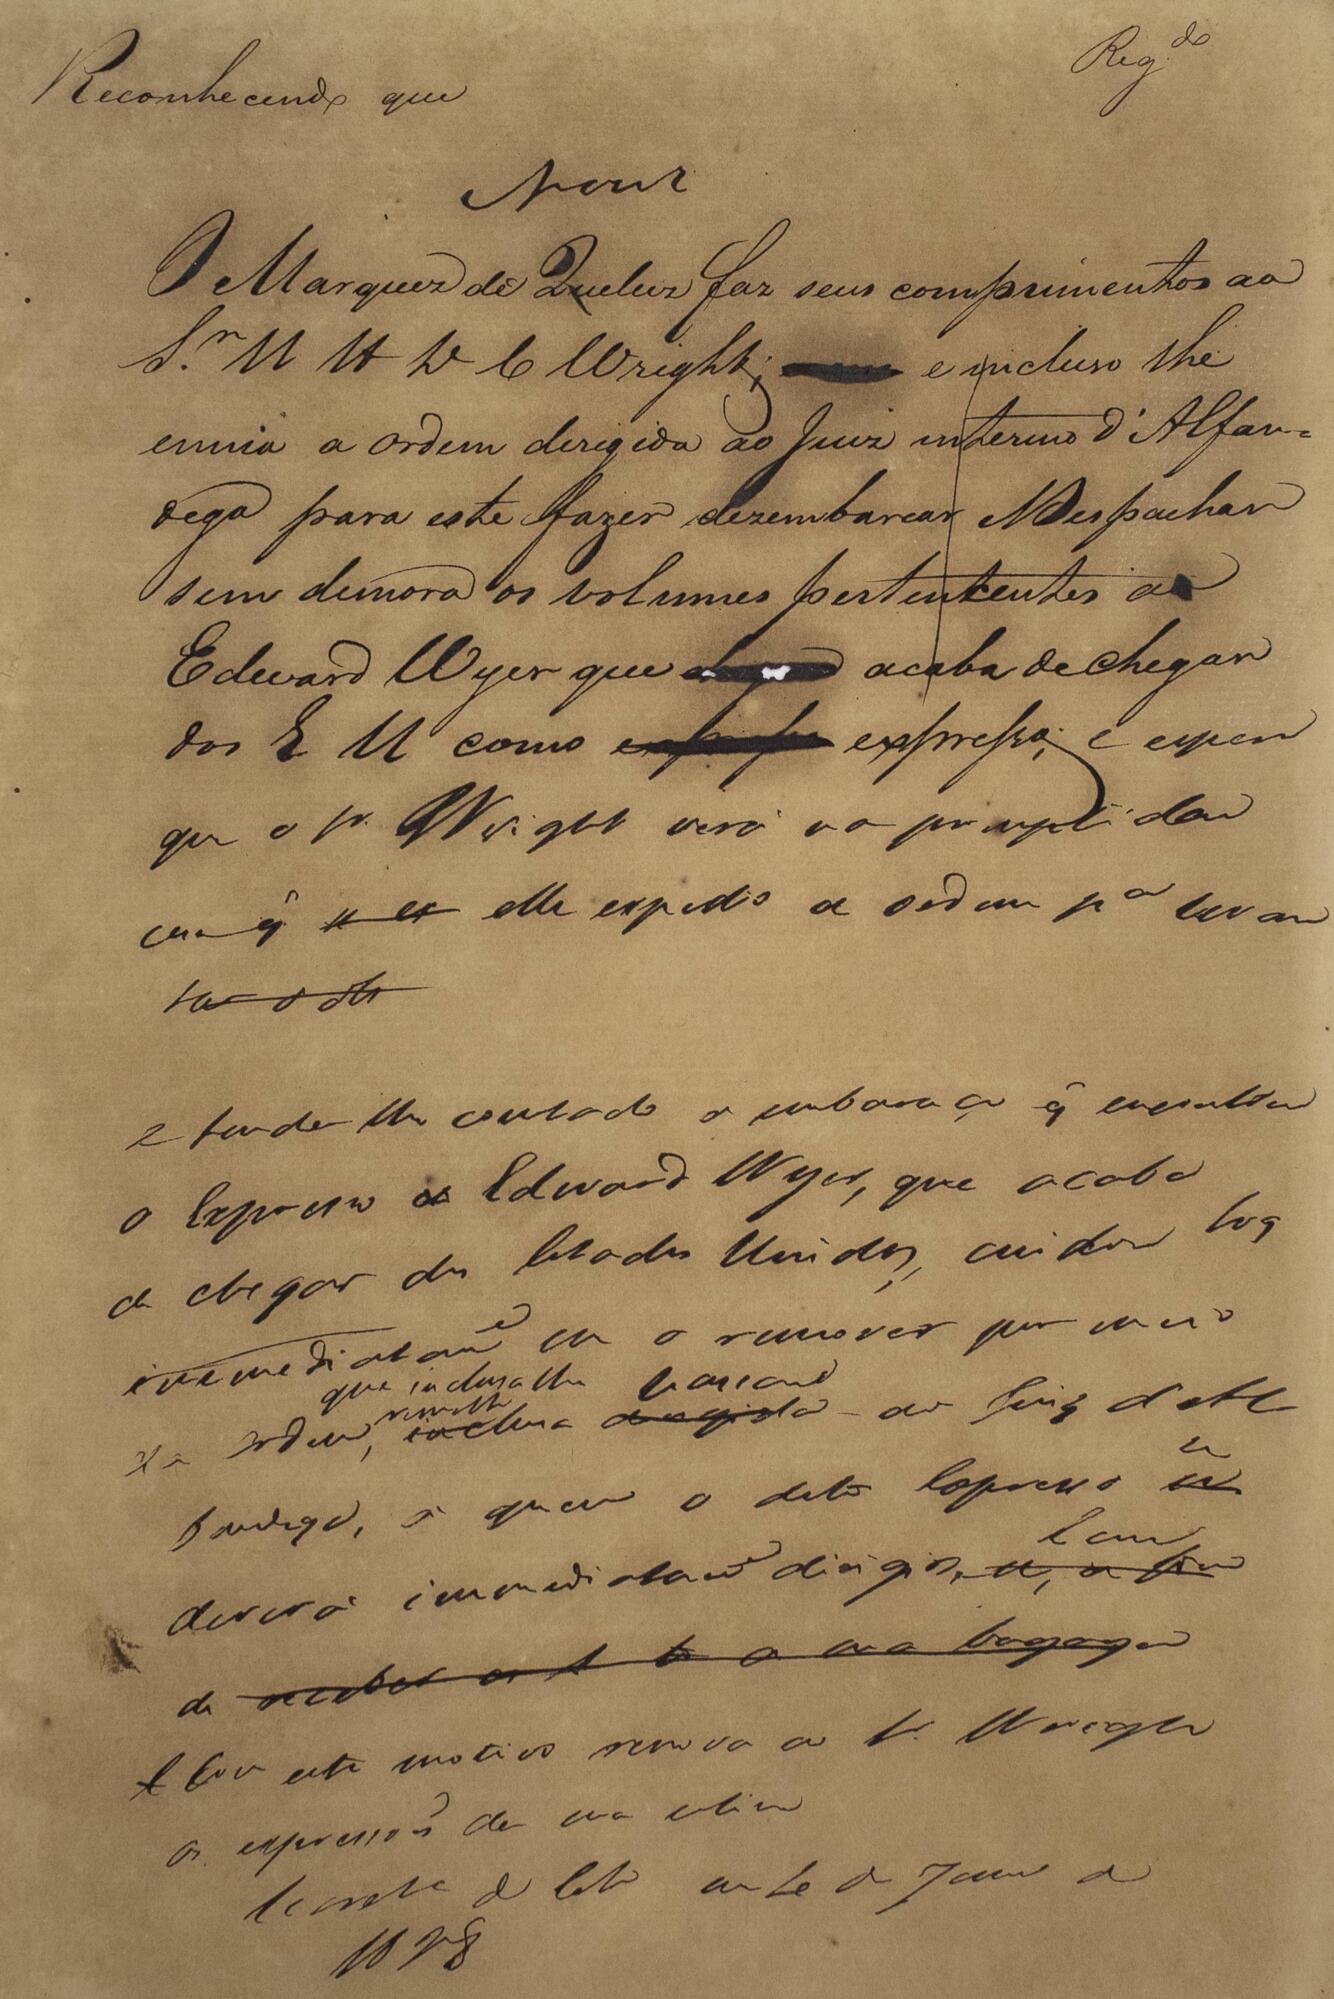 Reconhecendo que
Reg.do
O Marquez de Queluz faz seus comprimentos ao
S.r W H D C Wright; e incluso lhe
envia a ordem dirigida ao Juiz interino d'Alfan=
dega para este fazer dezembarcar e Despachar
sem demora os volumes pertencentes a
Edward Wyer que acaba de chegar
dos E U como expresso; e espera
que o Sr. Wright verá na promptidão
com q̃ elle expedio a ordem p.a levan
tar o
e tendo lhe constado o embaraço q̃ encontrou
o Expresso Edward Wyer, que acaba
de chegar dos Estados Unidos, cuidou logo
immediatam.e em o remover por meio
que inclusa lhe passando
remette
da ordem, inclusa dirigida ao Juiz d'Al
fandega, a quem o dito Expresso
deverá immediatam.e dirigir-se, a fim
de receber a sua bagagem
E com este motivo renova ao Sr. Wright
as expressoẽs de sua estima
Secreta d Esto em de Janro de
1828